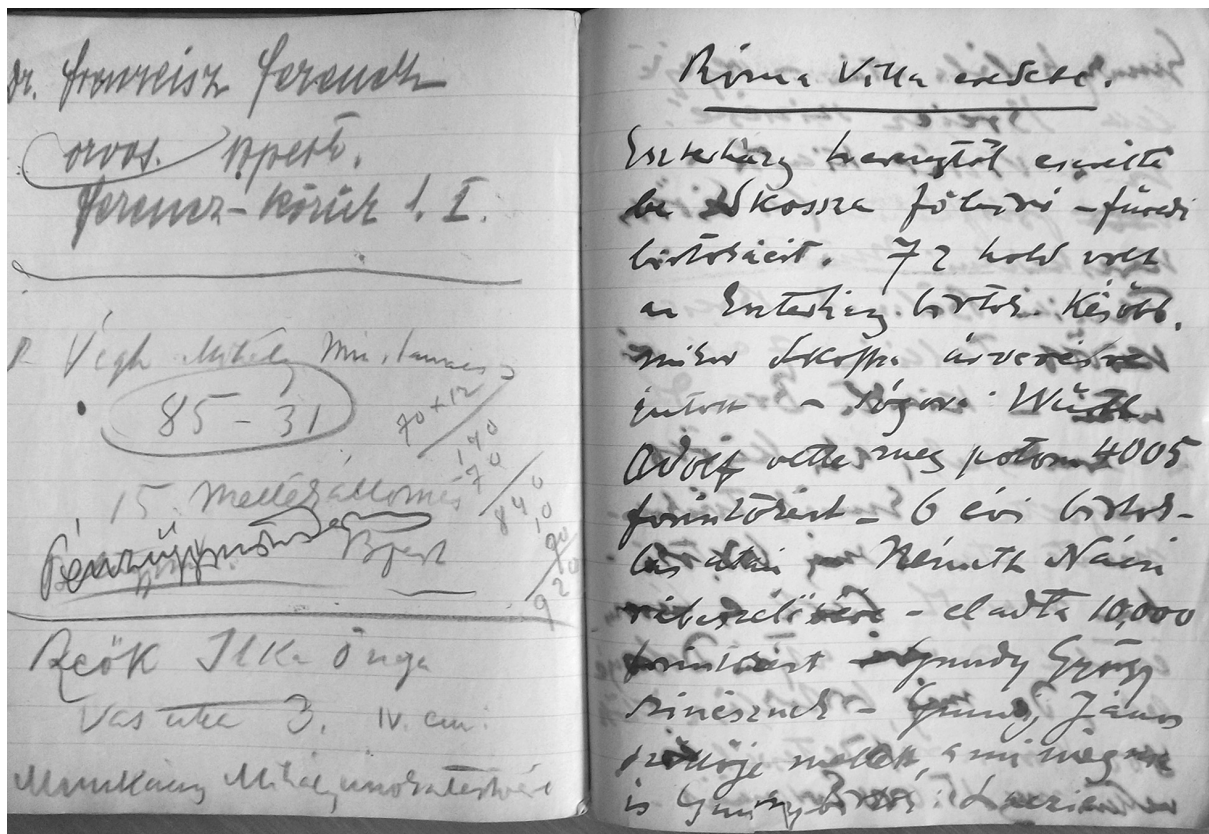 Dr. Franzeisz Ferencz
orvos. Bpest.
Ferencz-körút 1. I.
Végh Mihály
85-31
70x12
140
70
840
10
90
920
15. Mellékállomás
Pénzügymin Bpest
Reök Ilka
Vas utca 3. IV. em.
Munkácsy Mihály unokatestvére
Róma Villa eredete.
Eszterházy hercegtől cserélte
be Skossa fölső-füredi
birtokáért. 72 hold volt
az Eszterházy birtok. Később,
mikor Skossa árverésre
jutott - sógora
Adolf vette meg potom 4005
forintokért - 6 évi birtok-
lás után Németh Náci
rábeszélésére - eladta 10,000
forintért Gundy György
színésznek - Gundy János
szőllője mellett, ami még ma
is Gundy birtok.